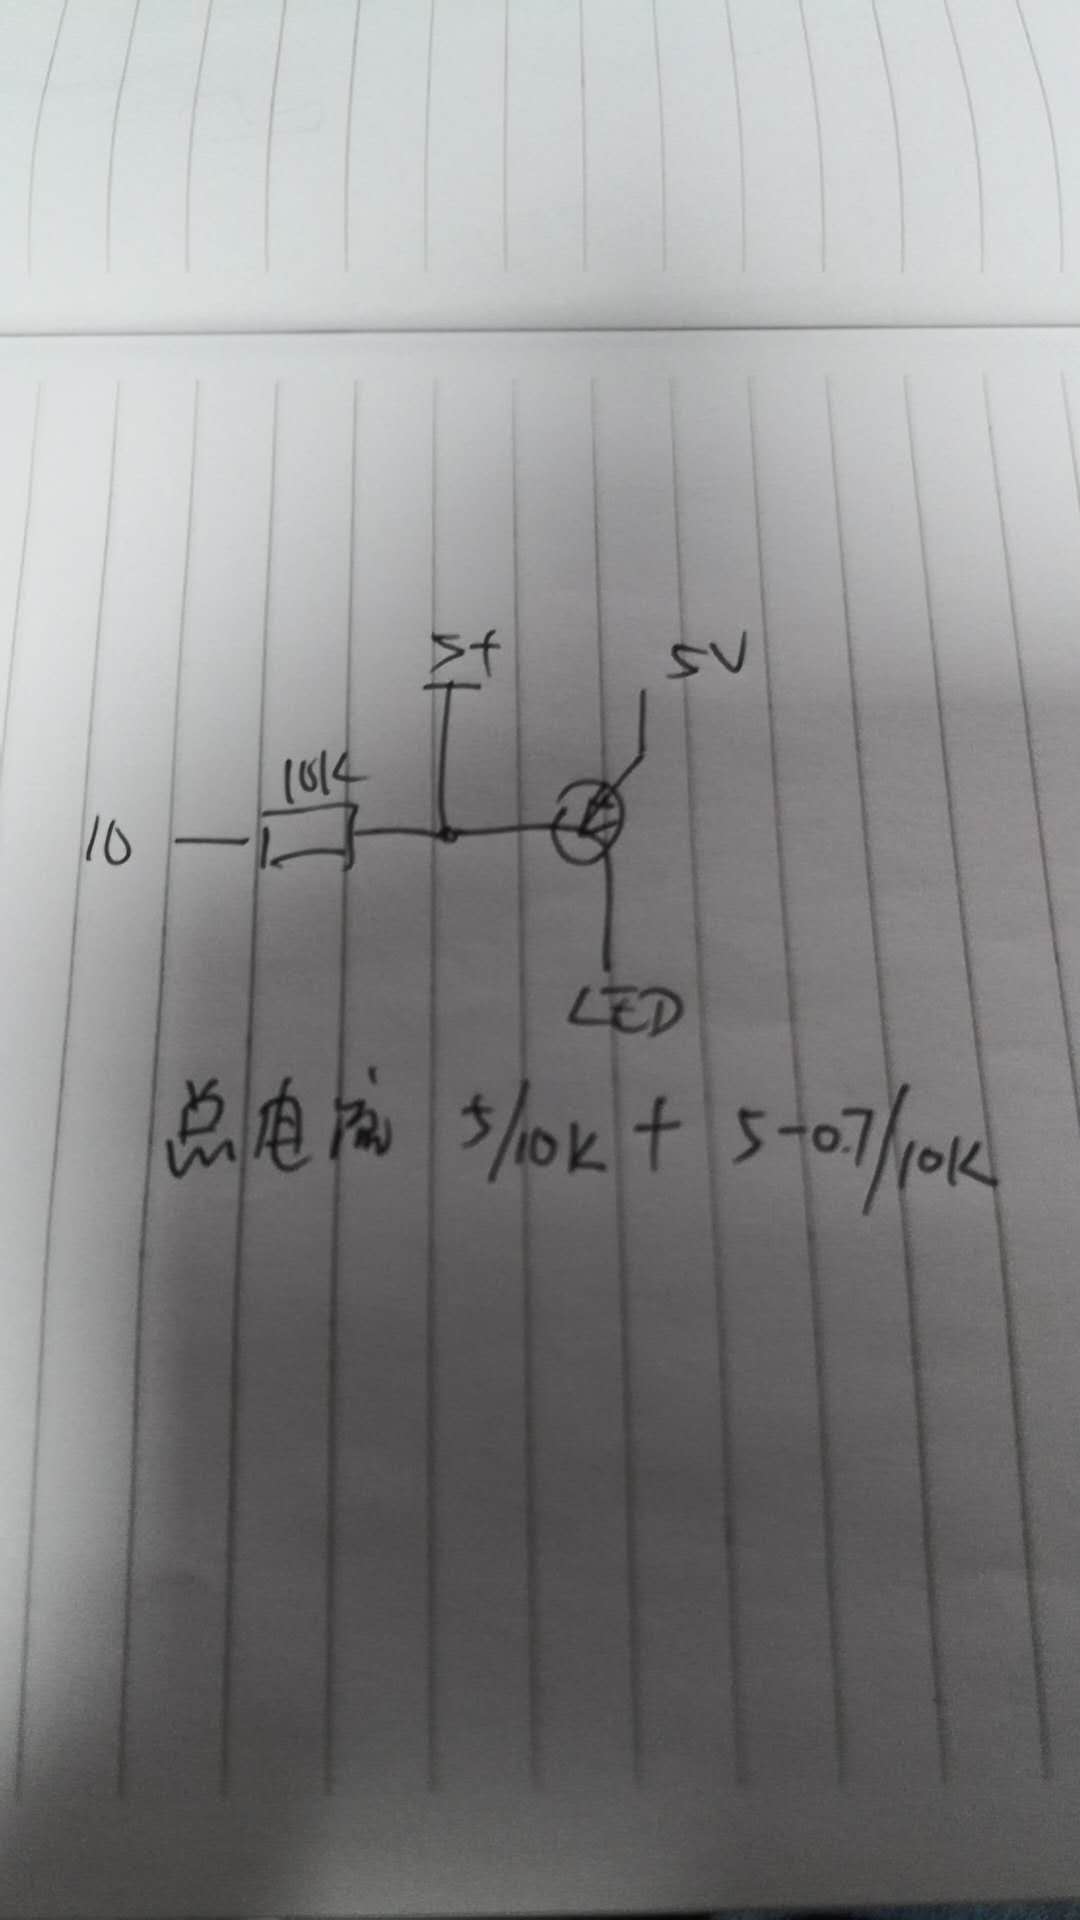 5+ 5V
10K
10
LED
总电流 5/10K + 5-0.7/10K